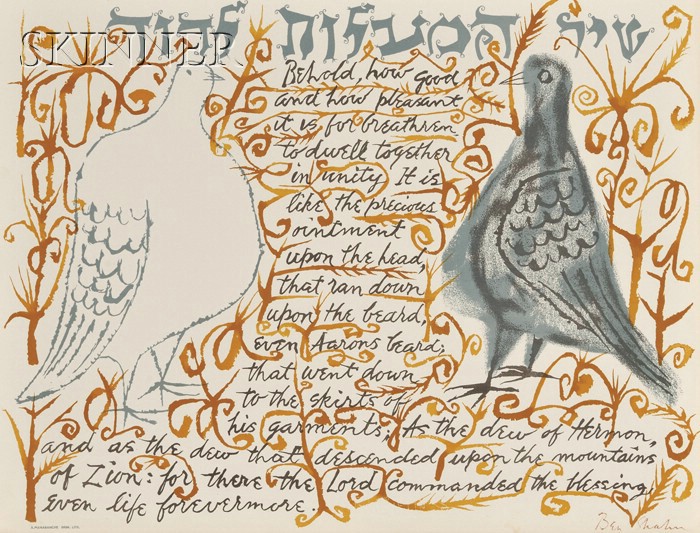 שיר המעלות לדוד
SKINNER
Behold, how good
and how pleasant
it is for breathren
to dwell together
in unity It is
like the precious
ointment
upon the head,
that ran down
upon the beard,
even Aarons beard;
that went down
to the skirts of
his garments; As the dew of Hermon,
and as the dew that descended upon the mountains
of Zion: for there the Lord commanded the blessing,
Even life forevermore.
Ben Shahn